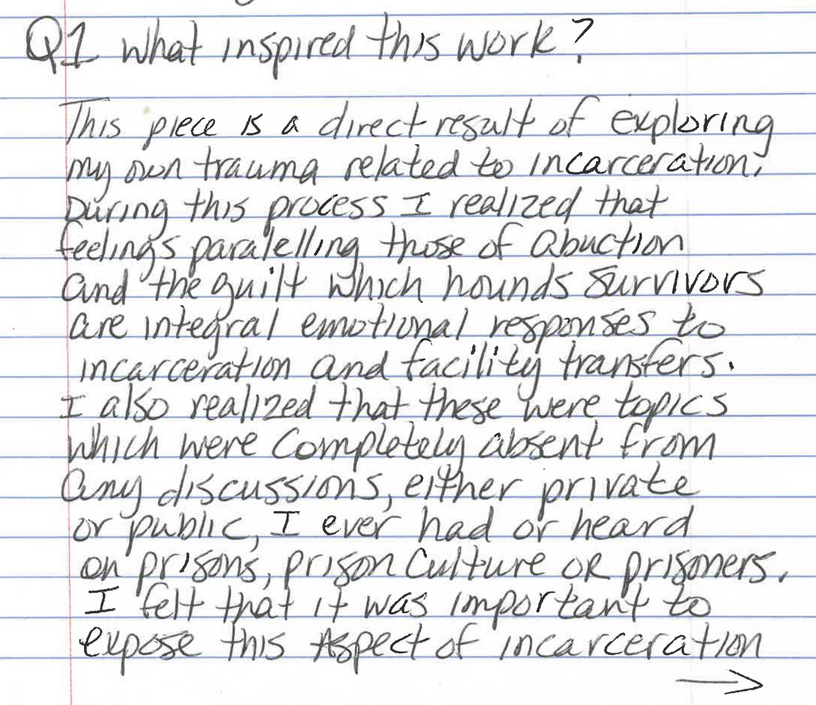 Q1 What inspired this work?
This piece is a direct result of exploring
my own trauma related to incarceration.
During this process I realized that
feelings paralelling those of abuction
and the guilt which hounds survivors
are integral emotional responses to
incarceration and facility transfers.
I also realized that these were topics
which were completely absent from
any discussions, either private
or public, I ever had or heard
on prisons, prison culture or prisoners.
I felt that it was important to
expose this aspect of incarceration
→